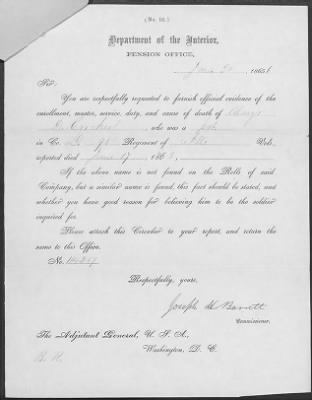 (No. 20.)
Department of the Interior,
PENSION OFFICE,
186
Sir:
You are respectfully requested to furnish official evidence of the
enrollment, muster, service, duty, and cause of death of
who was a
in Co. Regiment of Vols.,
reported died June 17 186
If the above name is not found on the Rolls of said
Company, but a similar name is found, this fact should be stated, and
whether you have good reason for believing him to be the soldier
inquired for.
Please attach this Circular to your report, and return the
same to this Office.
No.
Respectfully, yours,
Joseph H Barrett
Commissioner.
The Adjutant General, U. S. A.,
Washington, D. C.